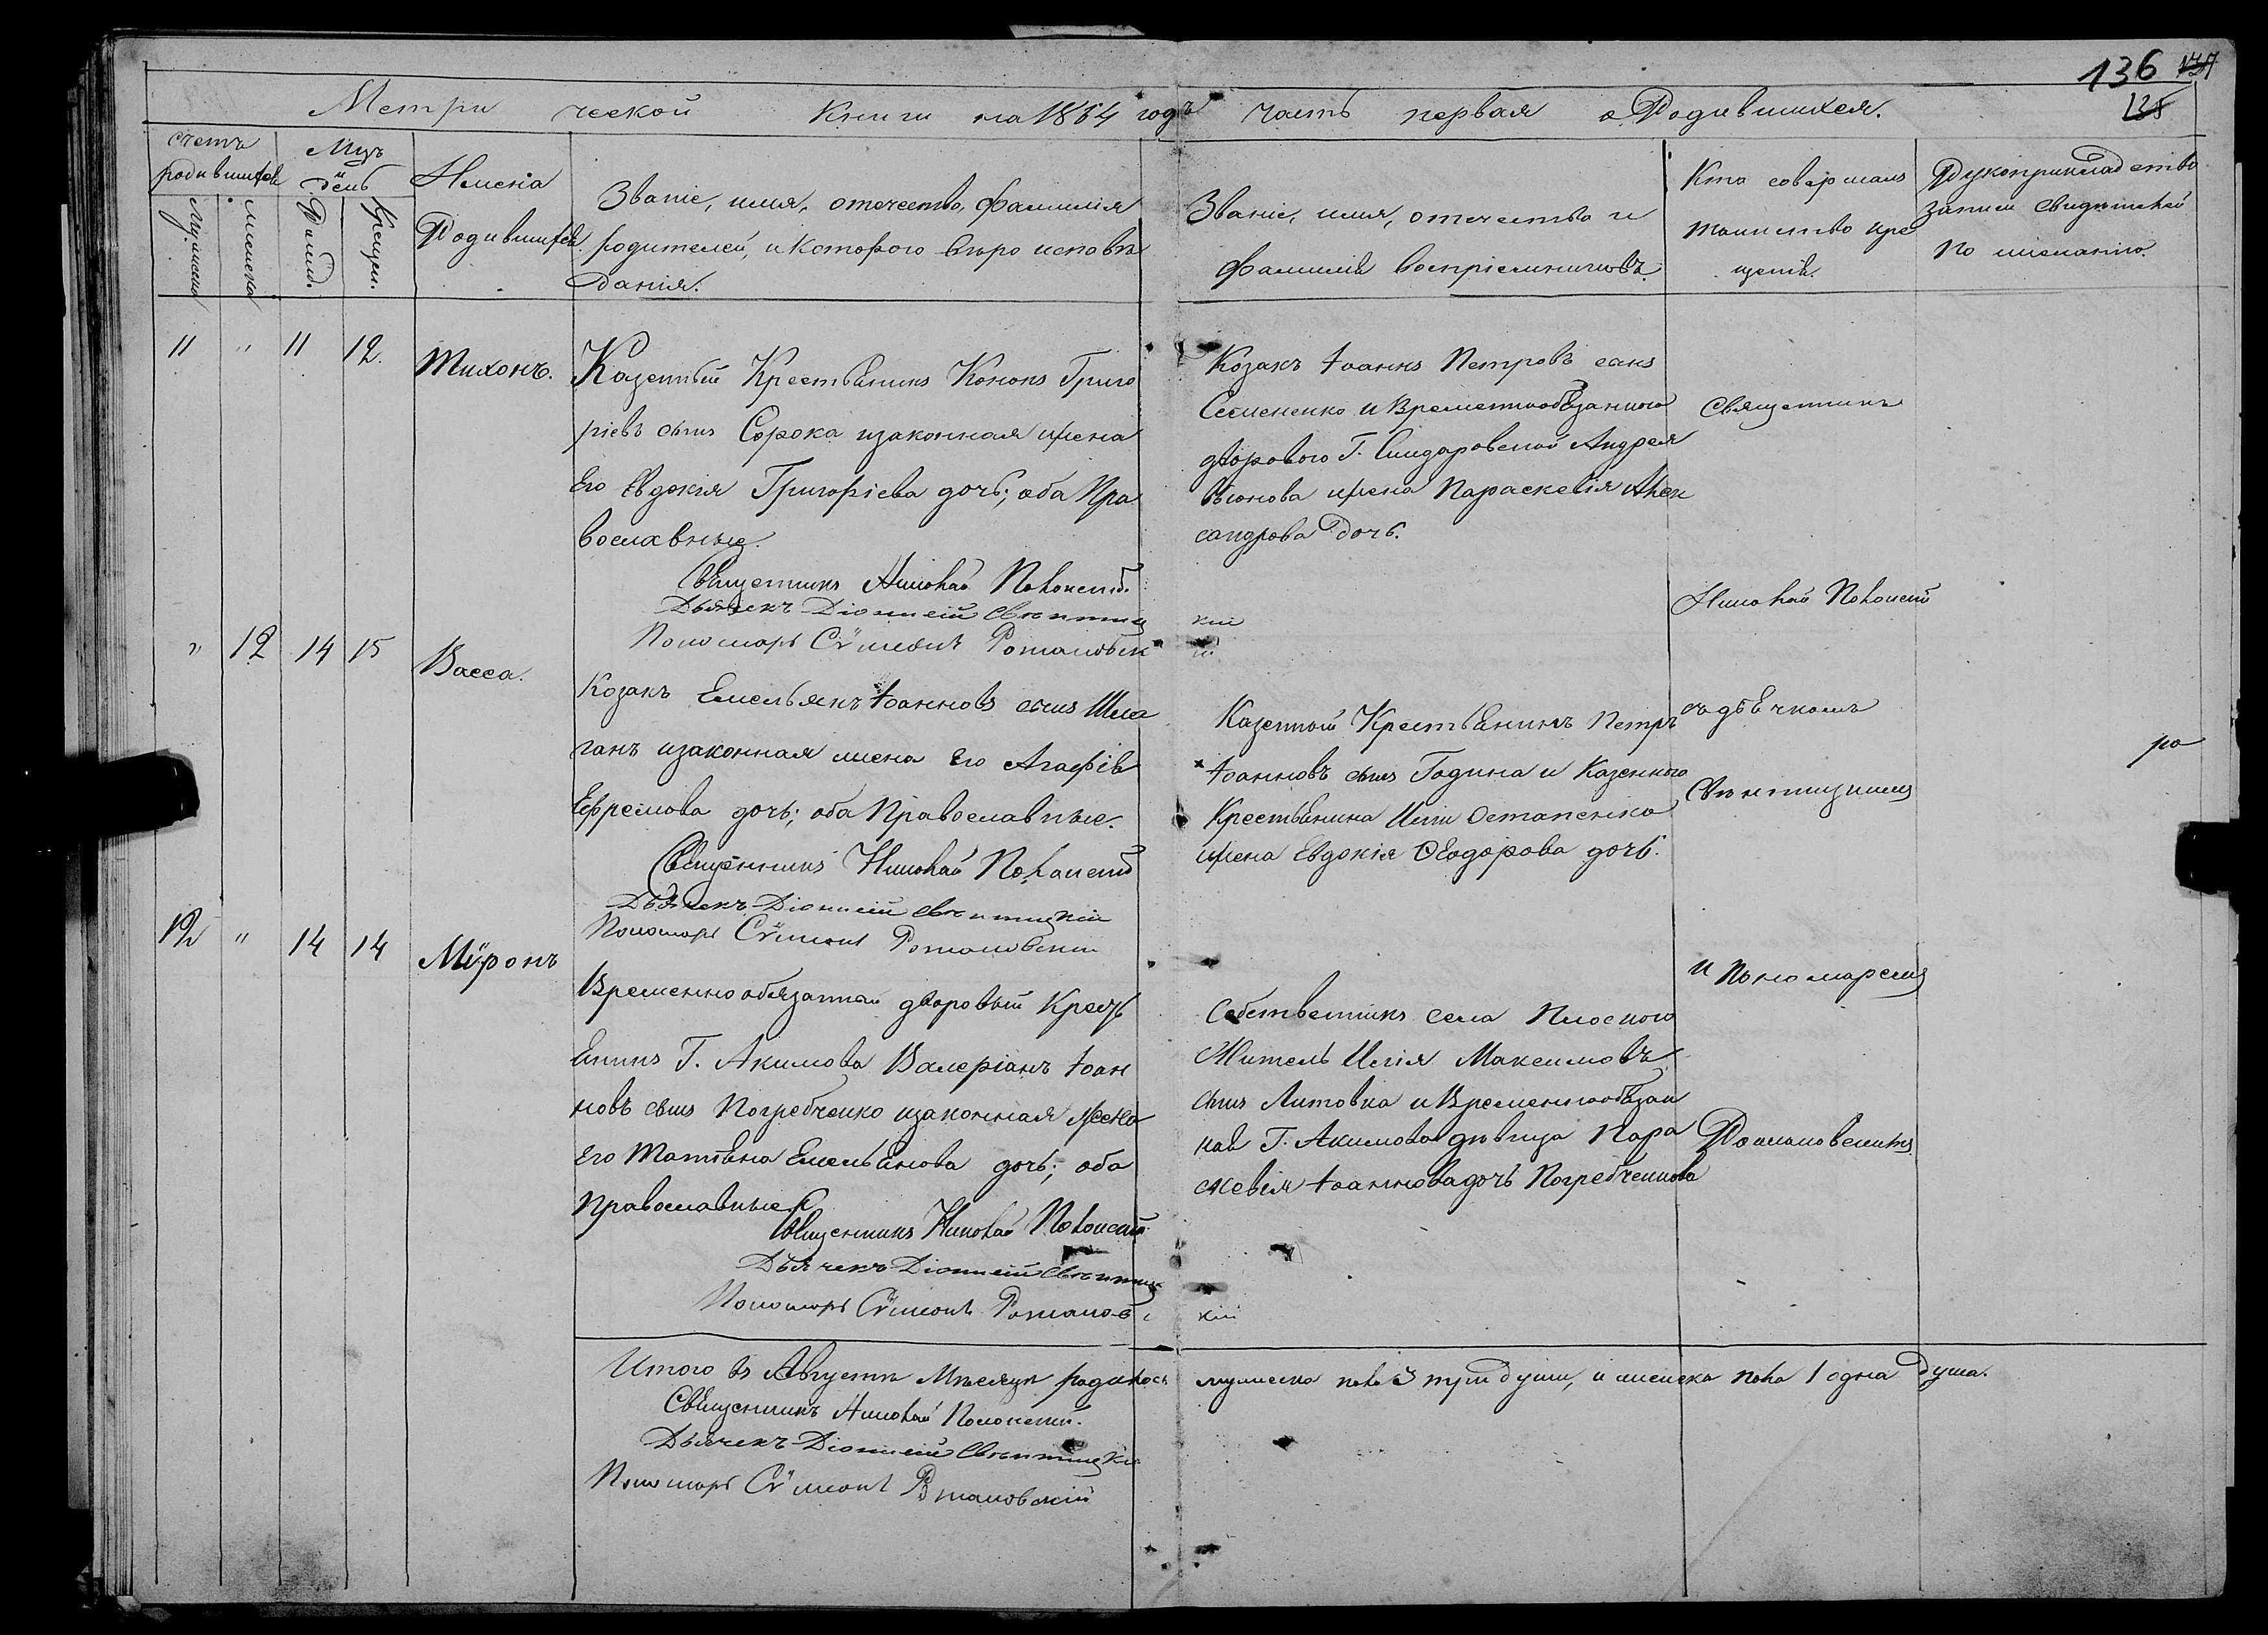 136
Метрической Книги на 1864 годъ часть первая о Родившихся.
Счетъ родившихся
Мужеска
Женска
Мцъ и день
Рожд.
Крещен.
Имена
Родившихся.
Званіе, имя, отчество, фамилія
родителей, и которого вѣроисповѣ
данія.
Званіе, имя, отчество и
фамилія воспріемниковъ.
Кто совершалъ
таинство кре
щенія.
Рукоприкладство
записи свидѣтелей
по желанію.
11 " 11 12. Тихонъ.
Казенный Крестьянинъ Кононъ Григо
ріевъ сынъ Сорока изаконная жена
Его Евдокія Григоріева дочь; оба Пра
вославные.
Священникъ Николай Полонскій.
Дьячекъ Діонисій Свентицкій
Пономарь Сѵмеонъ Романовскій
Козакъ Іоаннъ Петровъ сынъ
Семененко и Временнообязанного
дворового Г. Андрея
жена Параскевія Алек
сандрова дочь.
Священникъ
Николай Полонскій
" 12 14 15 Васса.
Козакъ Емельянъ Іоанновъ сынъ
ганъ изаконная жена Его Агафія
Ефремова дочь; оба Православные.
Священникъ Николай Полонскій
Дьячекъ Діонисій Свентицкій
Пономарь Сѵмеонъ Романовскій
Казенный Крестьянинъ Петръ
Іоанновъ сынъ Година и Казенного
Крестьянина Иліи Остапенка
жена Евдокія Ѳеодорова дочь.
съ дьячкомъ
Свентицкимъ
12 " 14 14 Мѵронъ
Временнообязанный дворовый Кресть
янинъ Г. Акимова Валеріанъ Іоан
новъ сынъ Погребченко изаконная жена
Его Татіяна Емельянова дочь; оба
Православные
Священникъ Николай Полонскій
Дьячекъ Діонисій Свентицкій
Пономарь Сѵмеонъ Романовскій
Собственникъ села Плоского
Житель Илія Максимовъ
сынъ Литовка и Временнообязан
ная Г. Акимова дѣвица Пара
скевія Іоаннова дочь Погребченкова
и Пономаремъ
Романовскимъ
Итого въ Августѣ Мѣсяцѣ родилось мужеска пола 3 три души, и женска пола 1 одна душа.
Священникъ Николай Полонскій.
Дьячекъ Діонисій Свентицкій
Пономарь Сѵмеонъ Романовскій